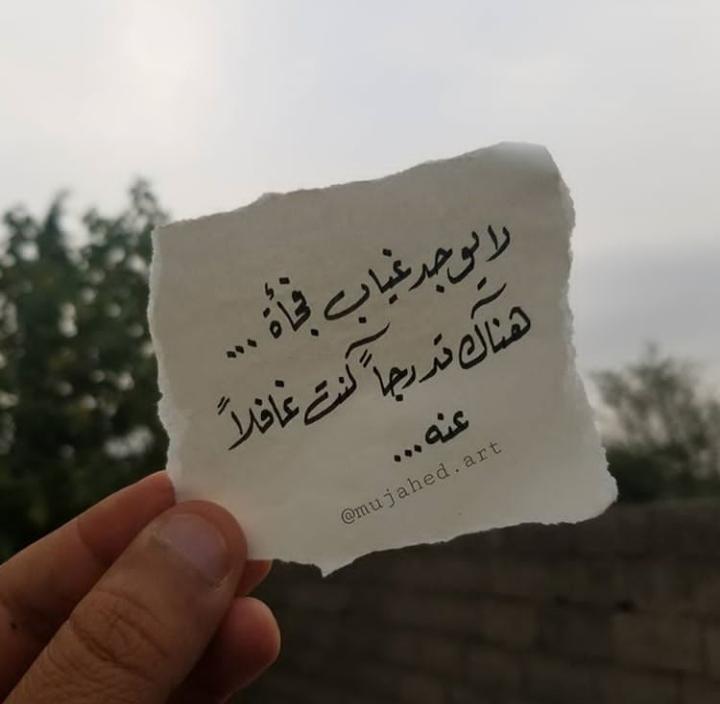 لا يوجد غياب فجأة ...
هناك تدرجاً كنت غافلاً
عنه ...
@mujahed.art